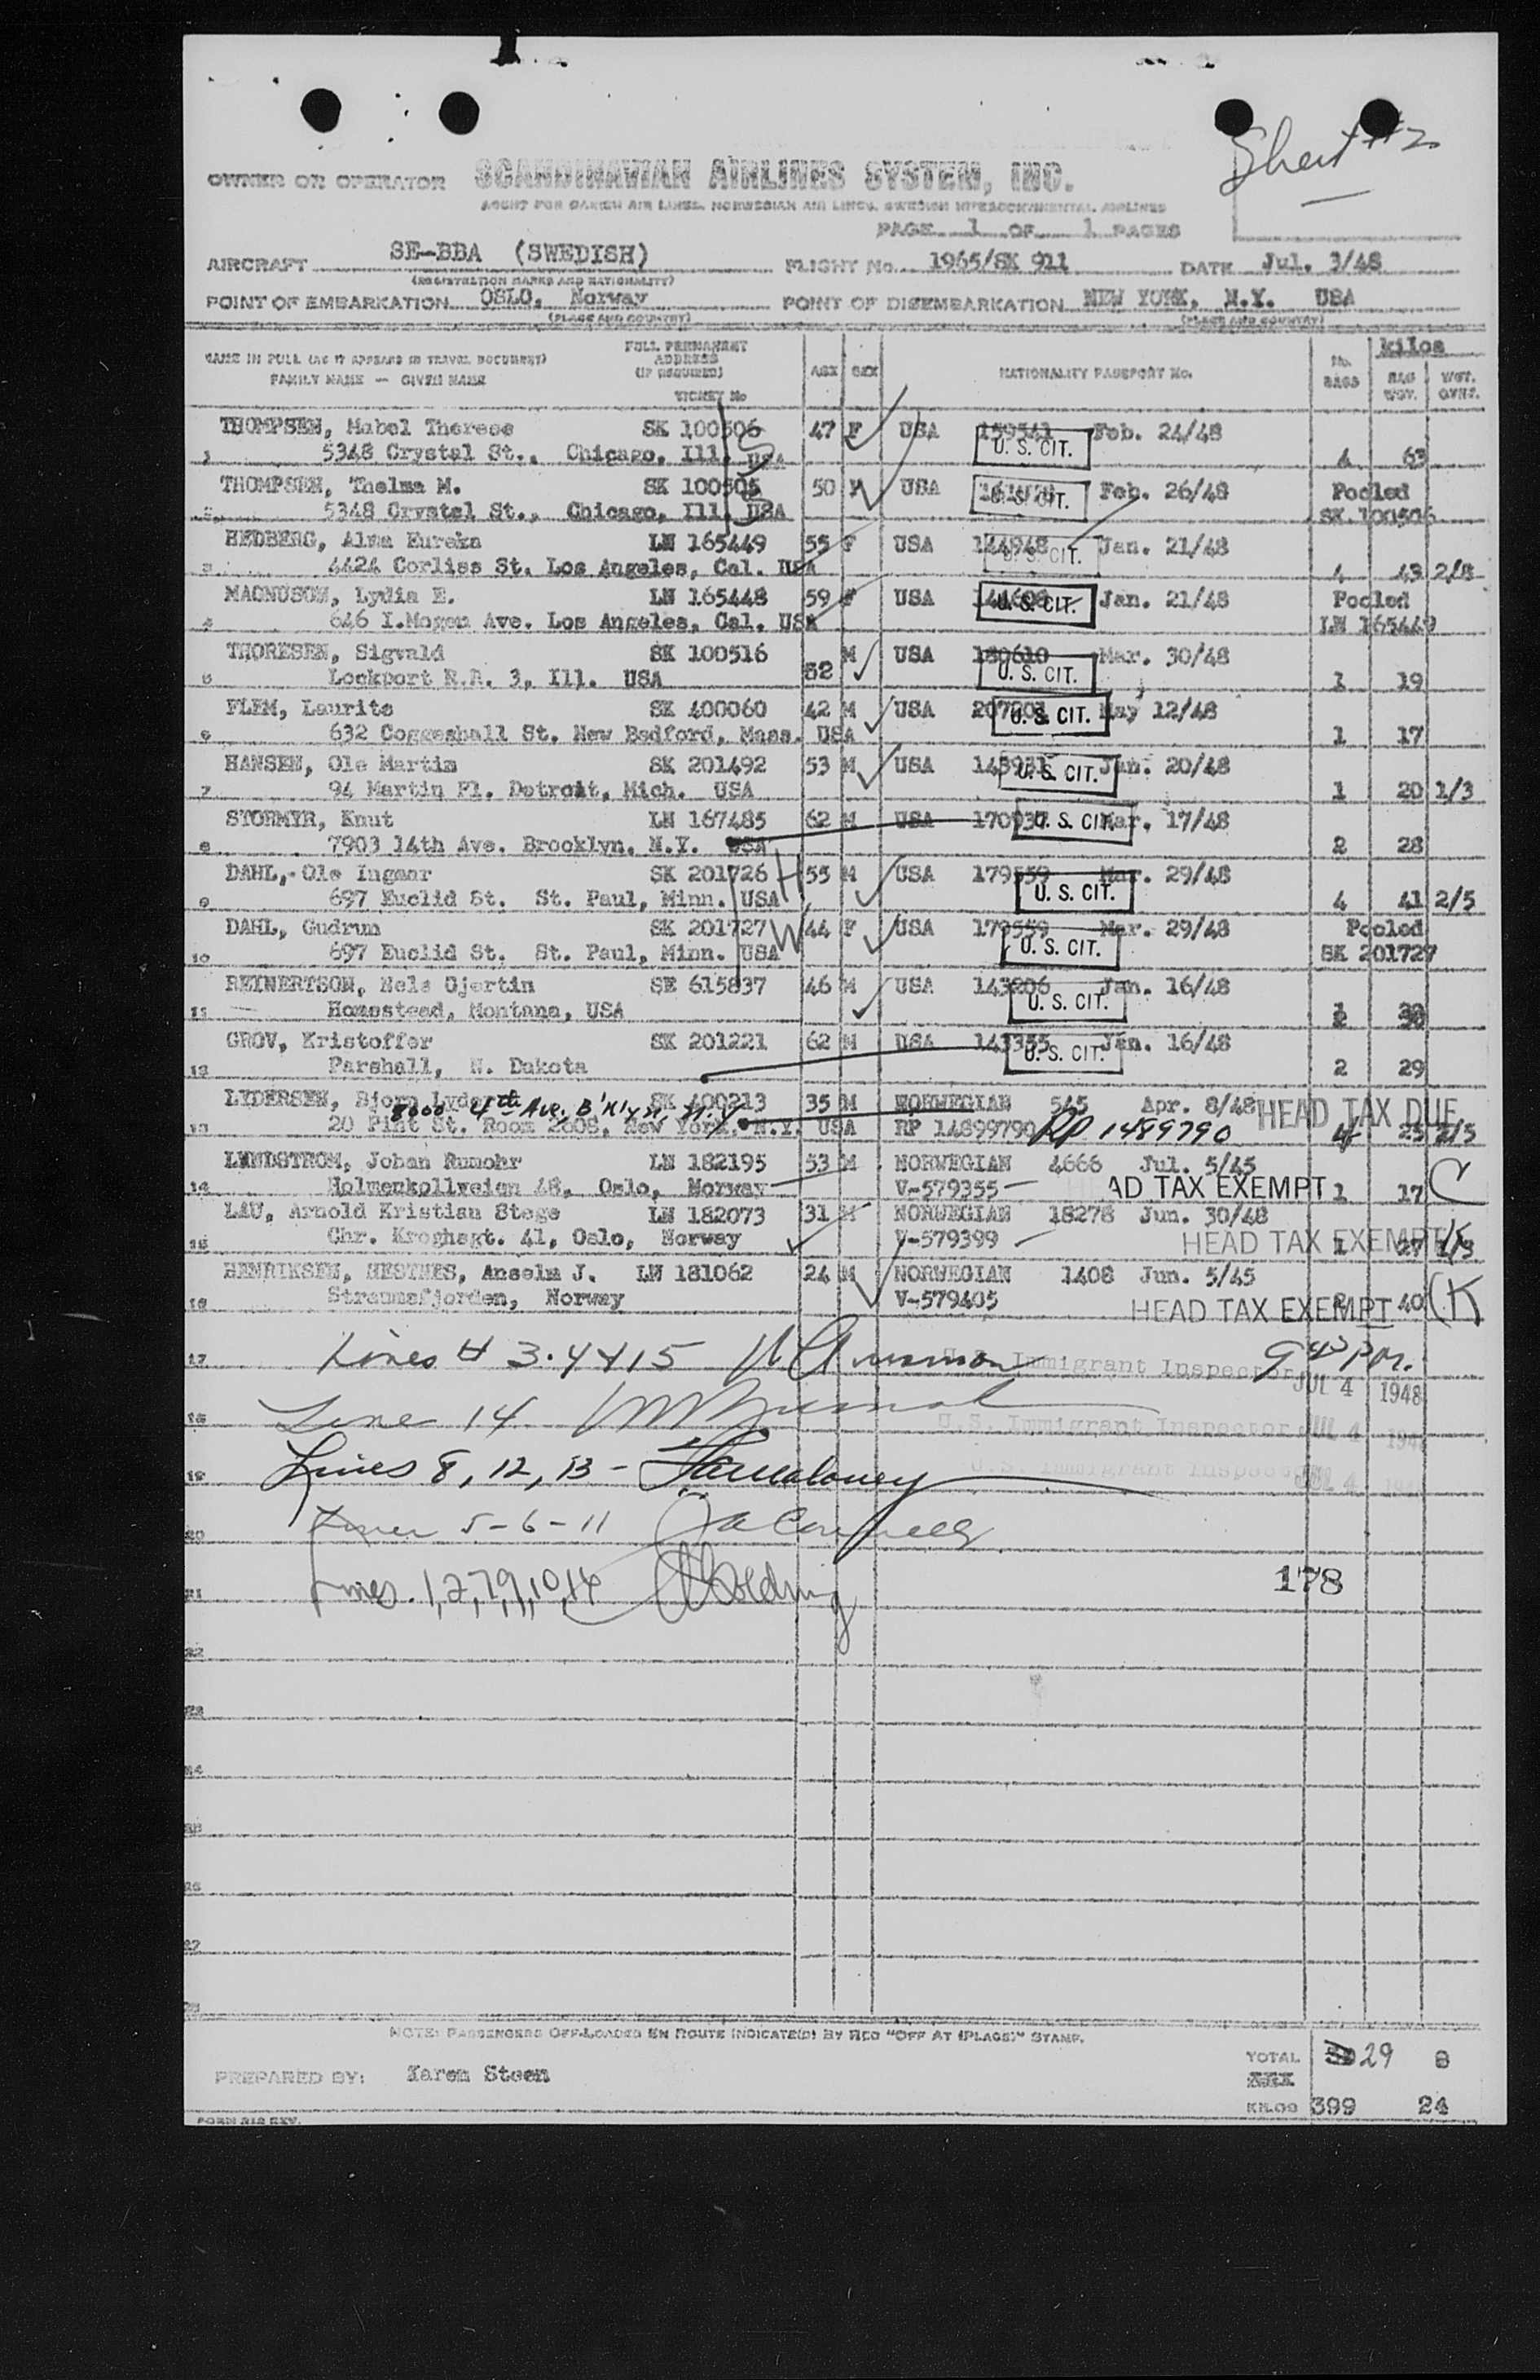 Sheet #2
OWNER OR OPERATOR SCANDINAVIAN AIRLINES SYSTEM, INC.
AGENT FOR DANISH AIR LINES, NORWEGIAN AIR LINES, SWEDISH INTERCONTINENTAL AIRLINES
PAGE 1 OF 1 PAGES
AIRCRAFT SE-BBA (SWEDISH) FLIGHT No. 1965/SK 911 DATE Jul. 3/48
(REGISTRATION MARKS AND NATIONALITY)
POINT OF EMBARKATION OSLO, Norway POINT OF DISEMBARKATION NEW YORK, N.Y. USA
(PLACE AND COUNTRY) (PLACE AND COUNTRY)
NAME IN FULL (AS IT APPEARS IN TRAVEL DOCUMENT) FULL PERMANENT ADDRESS (IF REQUIRED) AGE SEX NATIONALITY PASSPORT No. No. BAGS kilos BAG WGT. WGT. OVRT.
FAMILY NAME — GIVEN NAME TICKET No
THOMPSEN, Mabel Therese SK 100506 47 F USA 159541 Feb. 24/48
1 5348 Crystal St., Chicago, Ill. USA U. S. CIT. 4 63
THOMPSEN, Thelma M. SK 100505 50 F USA U. S. CIT. Feb. 26/48 Pooled
2 5348 Crystal St., Chicago, Ill. USA SK 100506
HEDBERG, Alma Eureka LN 165449 55 F USA 144948 Jan. 21/48
3 4424 Corliss St. Los Angeles, Cal. USA U. S. CIT. 4 43 2/8
MAGNUSON, Lydia E. LN 165448 59 F USA U. S. CIT. Jan. 21/48 Pooled
4 646 I.Mogen Ave. Los Angeles, Cal. USA LN 165449
THORESEN, Sigvald SK 100516 52 M USA 180610 Mar. 30/48
5 Lockport R.R. 3, Ill. USA U. S. CIT. 1 19
FLEM, Laurits SK 400060 42 M USA U. S. CIT. May 12/48
6 632 Coggeshall St. New Bedford, Mass. USA 1 17
HANSEN, Ole Martin SK 201492 53 M USA 143931 Jan. 20/48
7 94 Martin Pl. Detroit, Mich. USA U. S. CIT. 1 20 1/3
STORMYR, Knut LN 167485 62 M USA 170937 U. S. CIT. Mar. 17/48
8 7903 14th Ave. Brooklyn, N.Y. USA 2 28
DAHL, Ole Ingmar SK 201726 H 55 M USA 179559 Mar. 29/48
9 697 Euclid St. St. Paul, Minn. USA U. S. CIT. 4 41 2/5
DAHL, Gudrun SK 201727 W 44 F USA 179559 Mar. 29/48 Pooled
10 697 Euclid St. St. Paul, Minn. USA U. S. CIT. SK 201727
REINERTSON, Nels Gjertin SE 615837 46 M USA 143206 Jan. 16/48
11 Homestead, Montana, USA U. S. CIT.
GROV, Kristoffer SK 201221 62 M USA 143355 Jan. 16/48
12 Parshall, N. Dakota U. S. CIT. 2 29
LYDERSEN, Bjorn Lyder SK 400213 35 M NORWEGIAN 545 Apr. 8/48 HEAD TAX DUE
8000 4th Ave. B'klyn, N.Y.
13 20 Pint St. Room 2608, New York, N.Y. USA RP 14899790 RP 1489790 4 25 2/5
LUNDSTROM, Johan Rumohr LN 182195 53 M NORWEGIAN 4666 Jul. 5/45
14 Holmenkollveien 48, Oslo, Norway V-579355 HEAD TAX EXEMPT 1 17 C
LAU, Arnold Kristian Stege LN 182073 31 M NORWEGIAN 18278 Jun. 30/48
15 Chr. Kroghsgt. 41, Oslo, Norway V-579399 HEAD TAX EXEMPT 1 27 1/3
HENRIKSEN, HESTNES, Anselm J. LN 181062 24 M NORWEGIAN 1408 Jun. 5/45
16 Straumsfjorden, Norway V-579405 HEAD TAX EXEMPT 2 40 K
17 Lines # 3.4 & 15 U.S. Immigrant Inspector 9 45 P.M.
JUL 4 1948
18 Line 14 U.S. Immigrant Inspector JUL 4 1948
19 Lines 8, 12, 13 - U.S. Immigrant Inspector JUL 4 1948
20 Lines 5-6-11
21 Lines. 1,2,7,9,10,16 178
22
23
24
25
26
27
28
NOTE: PASSENGERS OFF-LOADED EN ROUTE INDICATE(D) BY RED "OFF AT (PLACE)" STAMP.
PREPARED BY: Karen Steen TOTAL 30 29 8
KILOS 399 24
FORM 212 REV.